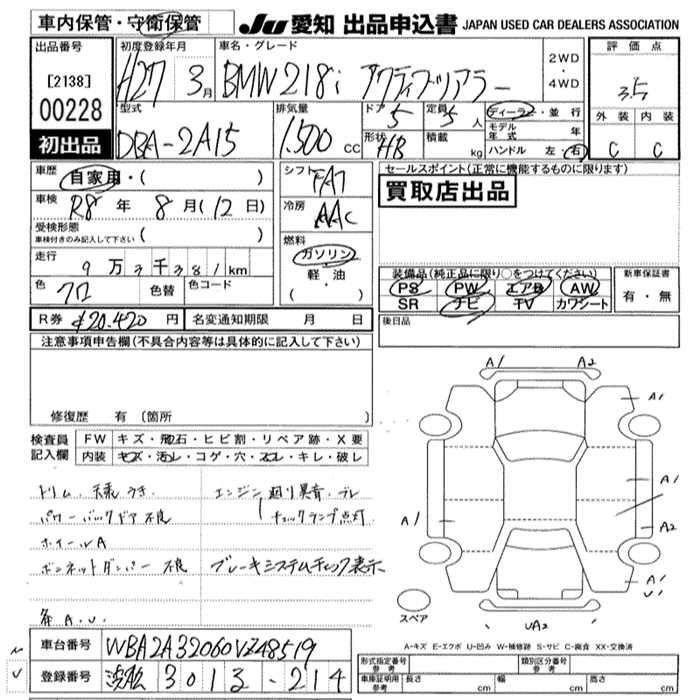 車内保管・守衛保管
JU 愛知 出品申込書 JAPAN USED CAR DEALERS ASSOCIATION
出品番号
[2138]
00228
初出品
初度登録年月
H27 3月
車名・グレード
BMW218i アクティブツアラー
2WD
・
4WD
評価点
3.5
外装 内装
C C
型式
DBA-2A15
排気量
1.500 cc
ドア 5
形状 HB
定員 5人
積載 kg
ディーラー・並行
モデル年式 年
ハンドル 左・右
車歴
自家用・( )
車検 R8年 8月(12日)
受検形態
車検付きのみ記入して下さい ( )
走行
9万3千381km
色 クロ 色替 色コード
シフト
FA7
冷房
AAC
燃料
ガソリン
軽・油
( ・ )
セールスポイント(正常に機能するものに限ります)
買取店出品
装備品(純正品に限り○をつけてください)
PS PW エアB AW
SR ナビ TV カワシート
新車保証書
有・無
R券 ¥20.420 円 名変通知期限 月 日
後日品
注意事項申告欄(不具合内容等は具体的に記入して下さい)
修復歴 有 (箇所
検査員
記入欄
FW キズ・飛石・ヒビ割・リペア跡・X要
内装 キズ・汚レ・コゲ・穴・スレ・キレ・破レ
トリム、天張うき
パワーバックドア不良
ホイールA
ボンネットダンパー不良
エンジン廻り異音、ブレ
チェックランプ点灯
ブレーキシステムチェック表示
各A.U.
A1 A2
A1
A1
A2
A1
U1
UA2
スペア
A-キズ E-エクボ U-凹み W-補修跡 S-サビ C-腐食 XX-交換済
車台番号 WBA2A32060VZ48519
登録番号 浜松 301 -214
形式指定番号
参考
類別区分番号
参考
車庫証明用
参考
長さ cm 幅 cm 高さ cm